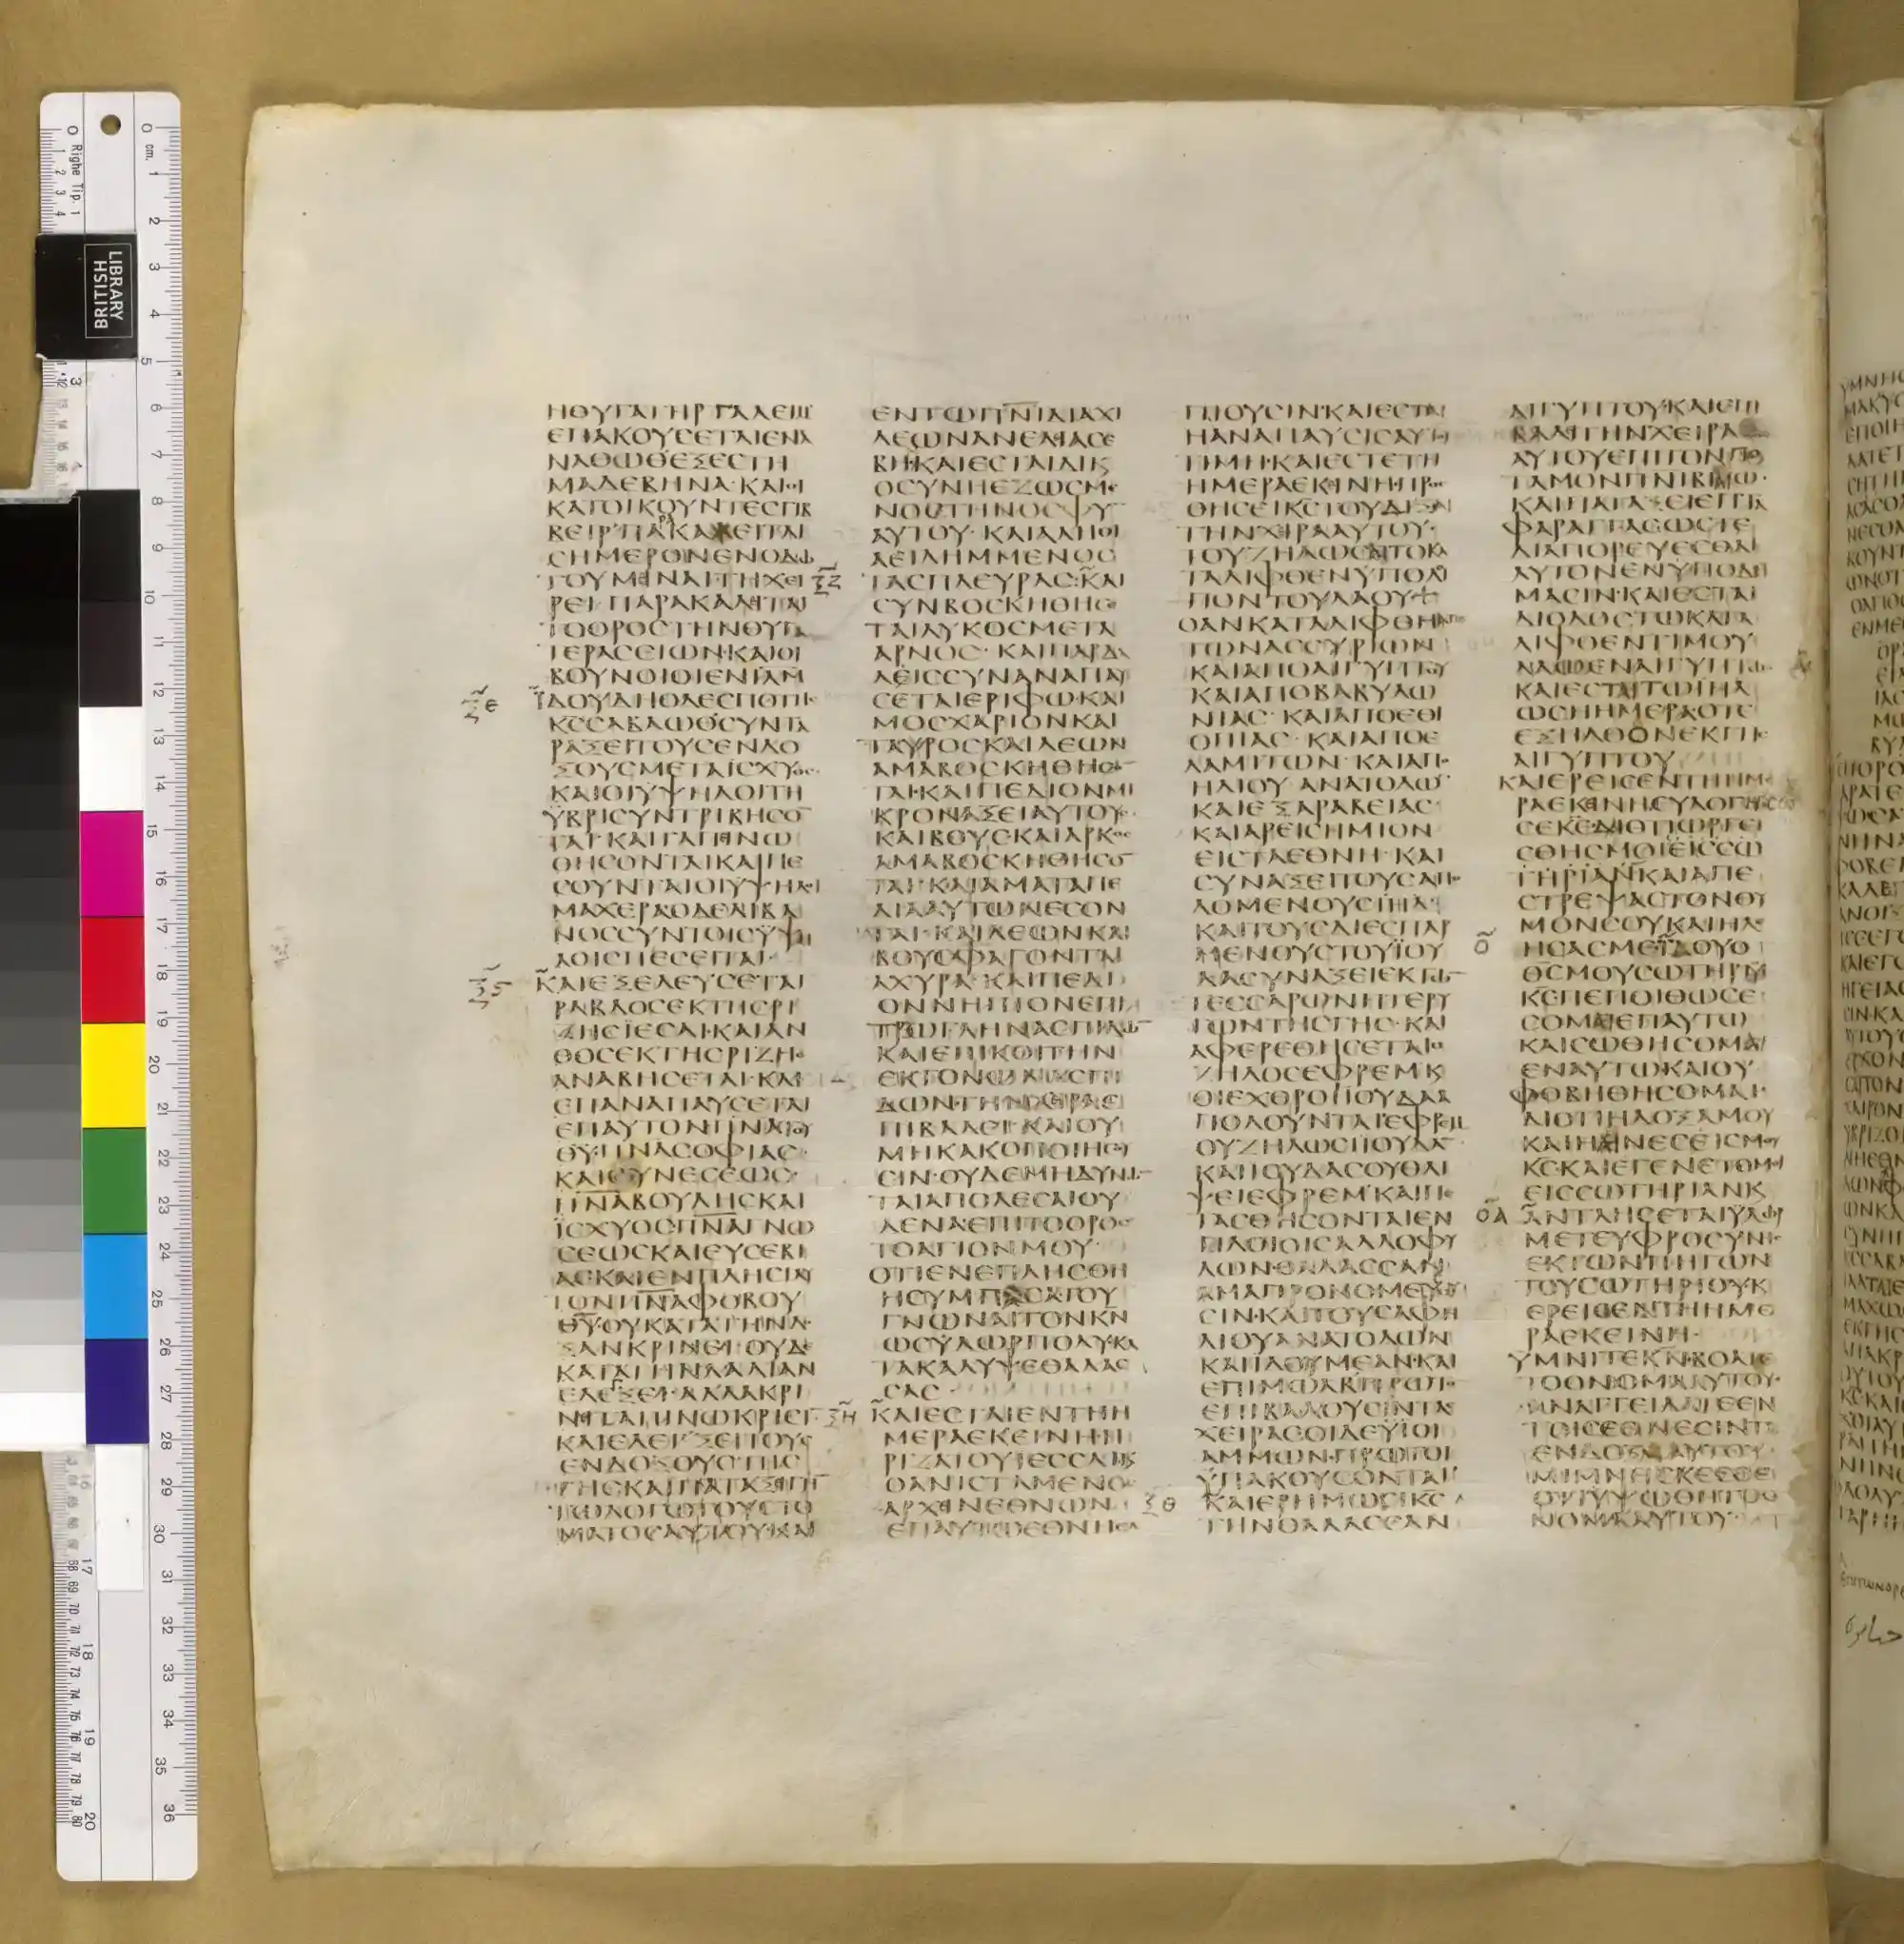 ΗΘΥΓΑΤΗΡΓΑΛΕΙΜ
ΕΠΑΚΟΥCΕΤΑΙΕΝΑ
ΝΑΘΩΘΕΞΕCΤΗ
ΜΑΔΕΒΗΝΑ·ΚΑΙΟΙ
ΚΑΤΟΙΚΟΥΝΤΕCΓΙΒ
ΒΕΙΡ·ΠΑΡΑΚΑΛΕΙΤΑΙ
CΗΜΕΡΟΝΕΝΟΔΩ
ΤΟΥΜΕΙΝΑΙΤΗΧΕΙ
ΡΕΙ·ΠΑΡΑΚΑΛΕΙΤΑΙ
ΤΟΟΡΟCΤΗΝΘΥΓΑ
ΤΕΡΑCΕΙΩΝ·ΚΑΙΟΙ
ΒΟΥΝΟΙΟΙΕΝΙΛΗΜ
Ξ̅Ε ΪΔΟΥΔΗΟΔΕCΠΟΤΗC
ΚCCΑΒΑΩΘCΥΝΤΑ
ΡΑΞΕΙΤΟΥCΕΝΔΟ
ΞΟΥCΜΕΤΑΪCΧΥΟC
ΚΑΙΟΙΥΨΗΛΟΙΤΗ
ΫΒΡΙCΥΝΤΡΙΒΗCΟ
ΤΑΙ·ΚΑΙΤΑΠΙΝΩ
ΘΗCΟΝΤΑΙΚΑΙΠΕ
CΟΥΝΤΑΙΟΙΫΨΗΛΟΙ
ΜΑΧΕΡΑΟΔΕΛΙΒΑ
ΝΟCCΥΝΤΟΙCΫΨΗ
ΛΟΙCΠΕCΕΙΤΑΙ·
Ξ̅Ϛ ΚΑΙΕΞΕΛΕΥCΕΤΑΙ
ΡΑΒΔΟCΕΚΤΗCΡΙ
ΖΗCΪΕCCΑΙ·ΚΑΙΑΝ
ΘΟCΕΚΤΗCΡΙΖΗC
ΑΝΑΒΗCΕΤΑΙ·ΚΑΙ
ΕΠΑΝΑΠΑΥCΕΤΑΙ
ΕΠΑΥΤΟΝΠΝΑΤΟΥ
ΘΥ·ΠΝΑCΟΦΙΑC·
ΚΑΙCΥΝΕCΕΩC·
ΠΝΑΒΟΥΛΗCΚΑΙ
ΪCΧΥΟCΠΝΑΓΝΩ
CΕΩCΚΑΙΕΥCΕΒΙ
ΑCΚΑΙΕΝΠΛΗCΙΑΥ
ΤΟΝΠΝΑΦΟΒΟΥ
ΘΥ·ΟΥΚΑΤΑΤΗΝΔΟ
ΞΑΝΚΡΙΝΕΙ·ΟΥΔΕ
ΚΑΤΑΤΗΝΛΑΛΙΑΝ
ΕΛΕΓΞΕΙ·ΑΛΛΑΚΡΙ
ΝΕΙΤΑΠΙΝΩΚΡΙCΙ
ΚΑΙΕΛΕΓΞΕΙΤΟΥC
ΕΝΔΟΞΟΥCΤΗC
ΓΗCΚΑΙΠΑΤΑΞΕΙΓΗ
ΤΩΛΟΓΩΤΟΥCΤΟ
ΜΑΤΟCΑΥΤΟΥ·ΚΑΙ
ΕΝΤΩΠΝΙΔΙΑΧΙ
ΛΕΩΝΑΝΕΛΙΑCΕ
ΒΗ·ΚΑΙΕCΤΑΙΔΙΚΑΙ
ΟCΥΝΗΕΖΩCΜΕ
ΝΟCΤΗΝΟCΦΥ
ΑΥΤΟΥ·ΚΑΙΑΛΗΘΙ
ΑΕΙΛΗΜΜΕΝΟC
Ξ̅Ζ ΤΑCΠΛΕΥΡΑC·ΚΑΙ
CΥΝΒΟCΚΗΘΗCΕ
ΤΑΙΛΥΚΟCΜΕΤΑ
ΑΡΝΟC·ΚΑΙΠΑΡΔΑ
ΛΕΙCCΥΝΑΝΑΠΑΥ
CΕΤΑΙΕΡΙΦΩ·ΚΑΙ
ΜΟCΧΑΡΙΟΝΚΑΙ
ΤΑΥΡΟCΚΑΙΛΕΩΝ
ΑΜΑΒΟCΚΗΘΗCΟ
ΤΑΙ·ΚΑΙΠΕΔΙΟΝΜΙ
ΚΡΟΝΑΞΕΙΑΥΤΟΥC
ΚΑΙΒΟΥCΚΑΙΑΡΚΟC
ΑΜΑΒΟCΚΗΘΗCΟ
ΤΑΙ·ΚΑΙΑΜΑΤΑΠΕ
ΔΙΑΑΥΤΩΝΕCΟΝ
ΤΑΙ·ΚΑΙΛΕΩΝΚΑΙ
ΒΟΥCΦΑΓΟΝΤΑΙ
ΑΧΥΡΑ·ΚΑΙΠΕΔΙ
ΟΝΝΗΠΙΟΝΕΠΙ
ΤΡΩΓΛΗΝΑCΠΙΔΩ
ΚΑΙΕΠΙΚΟΙΤΗΝ
ΕΚΓΟΝΩΝΑCΠΙ
ΔΩΝ·ΤΗΝΧΕΙΡΑΕ
ΠΙΒΑΛΕΙ·ΚΑΙΟΥ
ΜΗΚΑΚΟΠΟΙΗCΟΥ
CΙΝ·ΟΥΔΕΜΗΔΥΝΩ
ΤΑΙΑΠΟΛΕCΑΙΟΥ
ΔΕΝΑ·ΕΠΙΤΟΟΡΟC
ΤΟΑΓΙΟΝΜΟΥ·
ΟΤΙΕΝΕΠΛΗCΘΗ
ΗCΥΜΠΑCΑΤΟΥ
ΓΝΩΝΑΙΤΟΝΚΝ
ΩCΥΔΩΡΠΟΛΥ·ΚΑ
ΤΑΚΑΛΥΨΕΘΑΛΑC
CΑC·
Ξ̅Η ΚΑΙΕCΤΑΙΕΝΤΗΗ
ΜΕΡΑΕΚΕΙΝΗ·Η
ΡΙΖΑΤΟΥΙΕCCΑΙΚΑΙ
ΟΑΝΙCΤΑΜΕΝΟC
ΑΡΧΙΝΕΘΝΩΝ·
ΕΠΑΥΤΩΕΘΝΗΕΛ
ΠΙΟΥCΙΝ·ΚΑΙΕCΤΑΙ
ΗΑΝΑΠΑΥCΙCΑΥΤΟΥ
ΤΙΜΗ·ΚΑΙΕCΤΕΤΗ
ΗΜΕΡΑΕΚΙΝΗ·ΠΡΟC
ΘΗCΕΙΚCΤΟΥΔΙΞΑΙ
ΤΗΝΧΙΡΑΑΥΤΟΥ·
ΤΟΥΖΗΛΩCΑΙΤΟΚΑ
ΤΑΛΙΦΘΕΝΥΠΟΛΟΙ
ΠΟΝΤΟΥΛΑΟΥ
ΟΑΝΚΑΤΑΛΙΦΘΗΑΠΟ
ΤΩΝΑCCΥΡΙΩΝ
ΚΑΙΑΠΟΑΙΓΥΠΤΟΥ
ΚΑΙΑΠΟΒΑΒΥΛΩ
ΝΙΑC·ΚΑΙΑΠΟΕΘΙ
ΟΠΙΑC·ΚΑΙΑΠΟΕ
ΛΑΜΙΤΩΝ·ΚΑΙΑΠΟ
ΗΛΙΟΥΑΝΑΤΟΛΩ
ΚΑΙΕΞΑΡΑΒΕΙΑC·
ΚΑΙΑΡΕΙCΗΜΙΟΝ
ΕΙCΤΑΕΘΝΗ·ΚΑΙ
CΥΝΑΞΕΙΤΟΥCΑΠΟ
ΛΟΜΕΝΟΥCΙΗΛ·
ΚΑΙΤΟΥCΔΙΕCΠΑΡ
ΜΕΝΟΥCΤΟΥΪΟΥ
ΔΑCΥΝΑΞΕΙΕΚΤΩ
ΤΕCCΑΡΩΝΠΤΕΡΥ
ΓΩΝΤΗCΓΗC·ΚΑΙ
ΑΦΕΡΕΘΗCΕΤΑΙΟ
ΖΗΛΟCΕΦΡΕΜ·Κ
ΟΙΕΧΘΡΟΙΪΟΥΔΑΑ
ΠΟΛΟΥΝΤΑΙ·ΕΦΡΕΜ
ΟΥΖΗΛΩCΙΪΟΥΔΑ
ΚΑΙΪΟΥΔΑCΟΥΘΛΙ
ΨΕΙΕΦΡΕΜ·ΚΑΙΠΕ
ΤΑCΘΗCΟΝΤΑΙΕΝ
ΠΛΟΙΟΙCΑΛΛΟΦΥ
ΛΩΝ·ΘΑΛΑCCΑΝ
ΑΜΑΠΡΟΝΟΜΕΥCΟΥ
CΙΝ·ΚΑΙΤΟΥCΑΦΗ
ΛΙΟΥΑΝΑΤΟΛΩΝ
ΚΑΙΪΔΟΥΜΕΑΝ·ΚΑΙ
ΕΠΙΜΩΑΒΠΡΩΤΟ
ΕΠΙΒΑΛΟΥCΙΝΤΑC
ΧΕΙΡΑCΟΙΔΕΥΪΟΙ
ΑΜΜΩΝ·ΠΡΩΤΟΙ
ΫΠΑΚΟΥCΟΝΤΑΙ·
Ξ̅Θ ΚΑΙΕΡΗΜΩCΙΚC
ΤΗΝΘΑΛΑCCΑΝ
ΑΙΓΥΠΤΟΥ·ΚΑΙΕΠΙ
ΒΑΛΙΤΗΝΧΕΙΡΑ
ΑΥΤΟΥΕΠΙΤΟΝΠΟ
ΤΑΜΟΝΠΝΙΒΙΑΙΩ·
ΚΑΙΠΑΤΑΞΕΙΕΠΤΑ
ΦΑΡΑΓΓΑCΩCΤΕ
ΔΙΑΠΟΡΕΥΕCΘΑΙ
ΑΥΤΟΝΕΝΥΠΟΔΗ
ΜΑCΙΝ·ΚΑΙΕCΤΑΙ
ΔΙΟΔΟCΤΩΚΑΤΑ
ΛΙΦΘΕΝΤΙΜΟΥ
ΛΑΩΕΝΑΙΓΥΠΤΩ
ΚΑΙΕCΤΑΙΤΩΙΗΛ
ΩCΗΗΜΕΡΑΟΤΕ
ΕΞΗΛΘΟΝΕΚΓΗC
ΑΙΓΥΠΤΟΥ
ΚΑΙΕΡΕΙCΕΝΤΗΗΜΕ
ΡΑΕΚΙΝΗ·ΕΥΛΟΓΗCΩ
CΕΚΕ·ΔΙΟΤΙΩΡΓΙ
CΘΗCΜΟΙ
ΤΗΡΪΑΝΚΑΙΑΠΕ
CΤΡΕΨΑCΤΟΝΘΥ
ΜΟΝCΟΥΚΑΙΗΛΕ
Ο̅ ΗCΑCΜΕΪΔΟΥΟ
ΘCΜΟΥCΩΤΗΡΜ
ΚCΠΕΠΟΙΘΩCΕ
CΟΜΑΙΕΠΑΥΤΩ
ΚΑΙCΩΘΗCΟΜΑΙ
ΕΝΑΥΤΩ·ΚΑΙΟΥ
ΦΟΒΗΘΗCΟΜΑΙ·
ΔΙΟΤΙΗΔΟΞΑΜΟΥ
ΚΑΙΗΑΙΝΕCΕΙCΜΟΥ
ΚC·ΚΑΙΕΓΕΝΕΤΟΜΟΙ
ΕΙCCΩΤΗΡΙΑΝΚ
Ο̅Α ΑΝΤΛΗCΕΤΑΙΫΔΩΡ
ΜΕΤΕΥΦΡΟCΥΝΗC
ΕΚΤΩΝΠΗΓΩΝ
ΤΟΥCΩΤΗΡΙΟΥ·Κ
ΕΡΕΙCΕΝΤΗΗΜΕ
ΡΑΕΚΕΙΝΗ·
ΥΜΝΙΤΕΚΝ·ΒΟΑΤΕ
ΤΟΟΝΟΜΑΑΥΤΟΥ·
ΑΝΑΓΓΕΙΛΑΤΕΕΝ
ΤΟΙCΕΘΝΕCΙΝΤΑ
ΕΝΔΟΞΑΑΥΤΟΥ·
ΜΙΜΝΗCΚΕCΘΕ
ΟΤΙΫΨΩΘΗΤΟΟ
ΝΟΜΑΑΥΤΟΥ·
BRITISH
LIBRARY